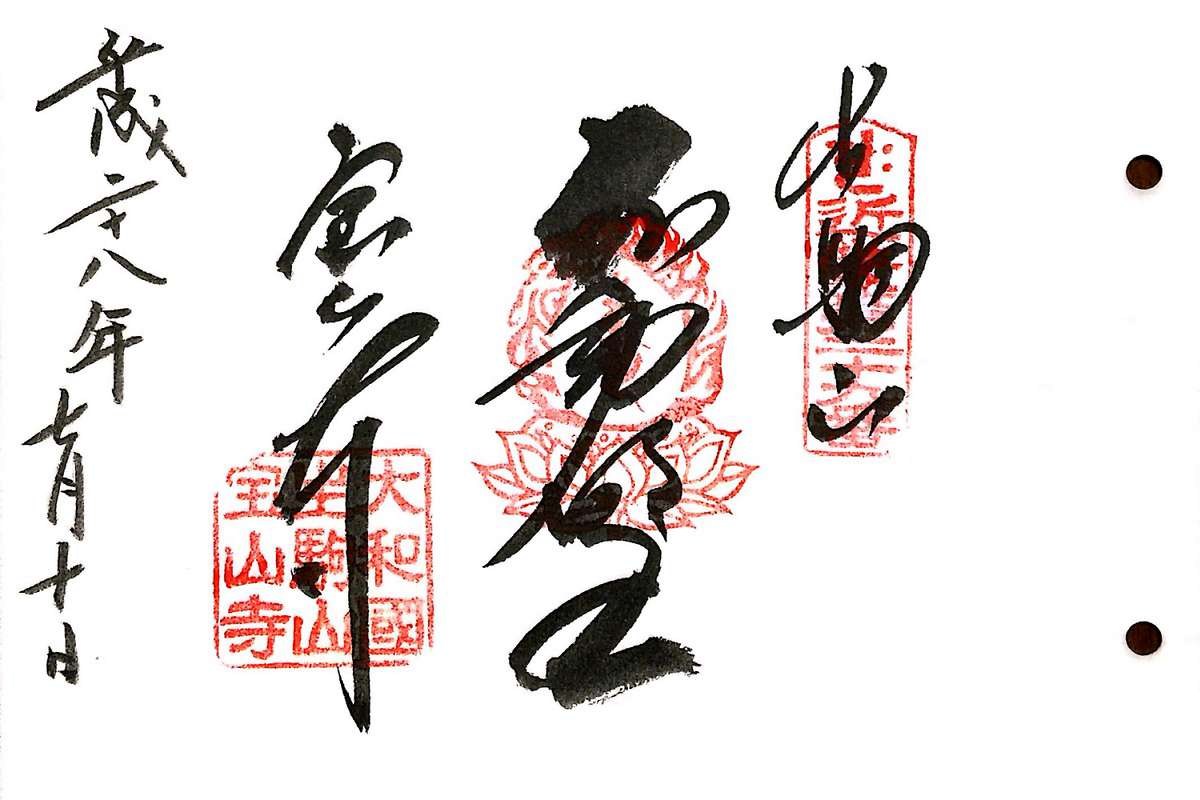 生駒山
不動明王
宝山寺
大和國
生駒山
宝山寺
平成二十八年七月十日